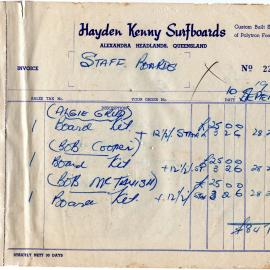 Hayden Kenny Surfboards
ALEXANDRA HEADLANDS, QUEENSLAND
Custom Built S
of Polytron Foa
INVOICE
STAFF BOARDS
X
No 22
10
SALES TAX No.
YOUR ORDER No.
DATE
DESCRIPTION
(ALGIE GRUD)
Board Kit + 12½ STAX £25 00 3 2 6 28 2
(BOB COOPER)
1 Board Kit + 12½ ST £25 00 3 2 6 28 2
(BOB McTAVISH)
1 Board Kit + 12½ 25 00 3 2 6 28 2
£84
STRICTLY NETT 30 DAYS